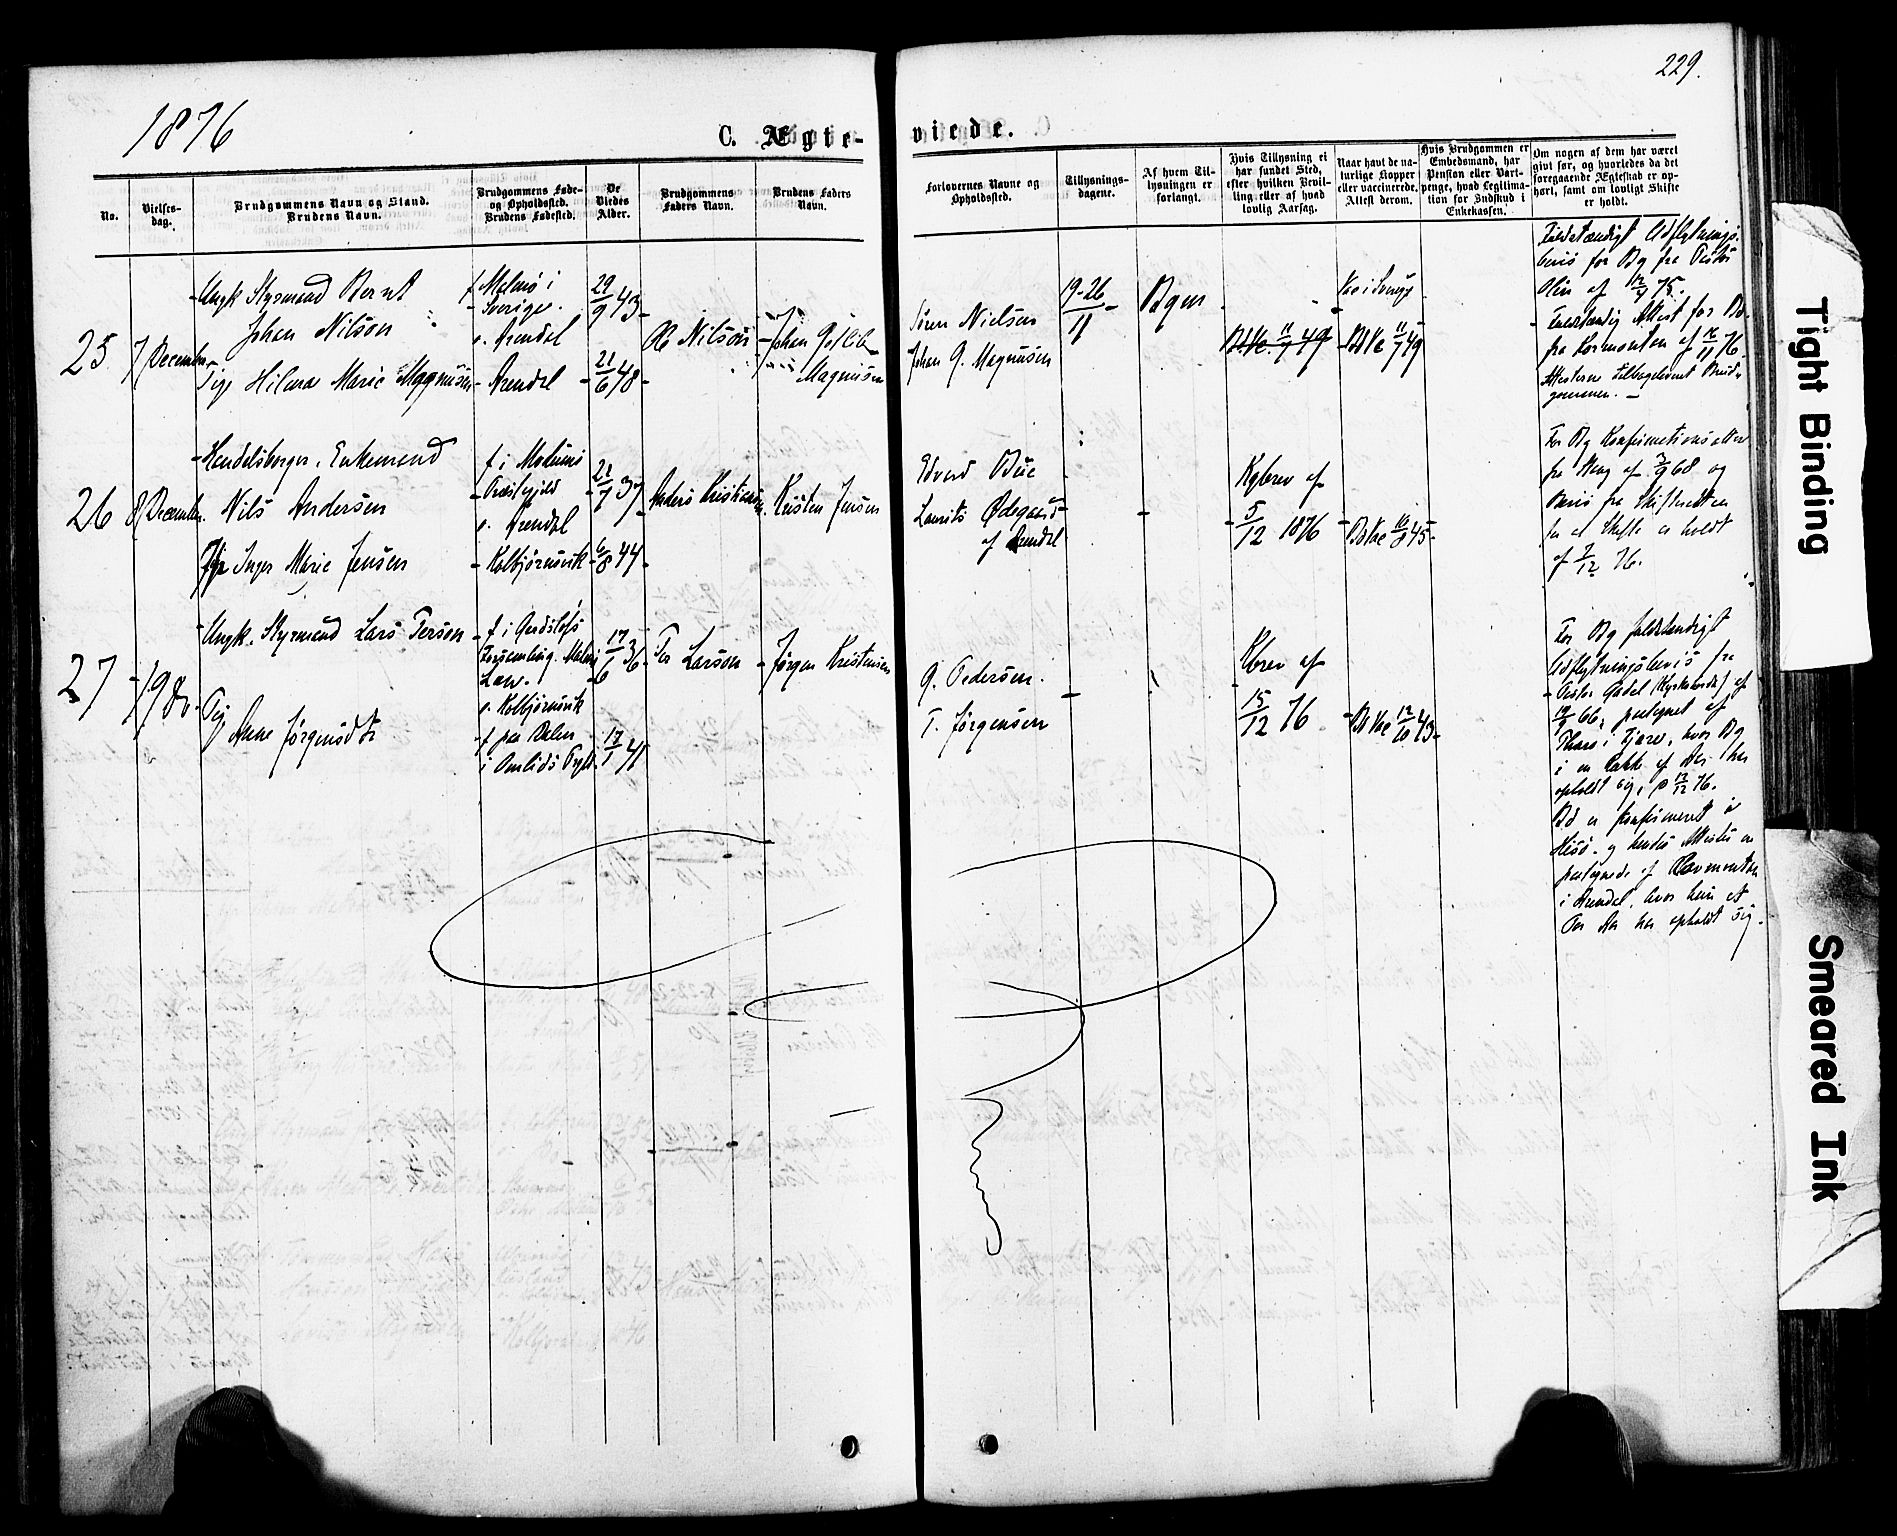 229.
1876
C. Ægte-viede.
No.
Vielses-dag.
Brudgommens Navn og Stand. Brudens Navn.
Brudgommens Føde- og Opholdssted. Brudens Fødested.
De Viedes Alder.
Brudgommens Faders Navn.
Brudens Faders Navn.
Forlovernes Navne og Opholdssted.
Tillysnings-dagene.
Af hvem Tillysningen er forlangt.
Hvis Tillysning ei har fundet Sted, efter hvilken Bevilling eller af hvad lovlig Aarsag.
Naar havt de naturlige Kopper eller vaccinerede, Attest derom.
Hvis Brudgommen er Embedsmand, har Pension eller Vartpenge, hvad Legitimation for Indskud i Enkekassen.
Om nogen af dem har været givt før, og hvorledes da det foregaaende Ægteskab er ophørt, samt om lovligt Skifte er holdt.
25
7 December
Ungk Styrmand Bernt
Johan Nilson
Pige Hilma Marie Magnusen
f Malmø i
Sverige.
o. Arendal
Arendal
29/9 43
21/6 48
Ole Nilson
Johan
Magnusen
Søren Nielsen
Johan G. Magnusen
19-26/11
Bgm
BtVc 11/7 49
Vac i Sverige
BtVc 11/7 49
Fuldstændigt Udflytnings-
bevis for Bg fra Pastor
Olin af
Fuldstændig Attest for Bd
fra Kormonten af 16/11 76.
Attesterne tilbageleveret Brud-
gommen.
26
8 December.
Handelsborger, Enkemand
Nils Andersen
Pige Inger Marie Jensen
f i Modums
Præstegjeld
o. Arendal
Kolbjørnsvik
37
6/8 44
Anders Kristiansen
Kristen Jensen
Edvard Bue
Laurits Ødegaard
af Arendal
Kgbrev af
5/12 1876
BtVac 16/8 45
For Bg Konfirmationsattest
fra af 3/9 68 og
Bevis fra Skifteretten
for at Skifte er holdt
af 7/12 76.
27
19 do.
Ungk. Styrmand Lars Person
Pig
Anne Jørgensdtr
f i
Forsamling. Malmø
Læn.
o. Kolbjørnsvik
f paa Dalen
i Omlids Prgld.
17/6 36
17/1 41
Per Larson
Jørgen Kristensen
G. Pedersen.
T. Jørgensen
Kbrev af
15/12 76
BtVac 12/10 43
For Bg fuldstændigt
Udflytningsbevis fra
Pastor
66, paategnet af
i hvor Bg
i en Række af Aar har
opholdt sig, 13/12 76.
Bd er konfirmeret i
Hisø. og hendes Attester er
paategnede af Kormonten
i Arendal, hvor hun et
Par Aar har opholdt sig.
Tight Binding
Smeared Ink